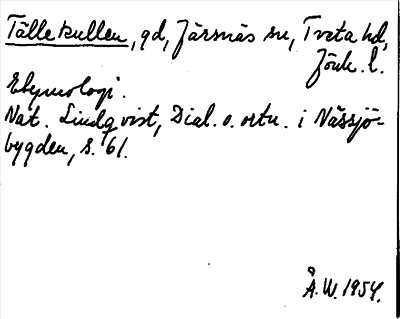 Tällekullen, gd, Järsnäs sn, Tveta hd,
Jönk. l.
Etymologi.
Nat. Lindqvist, Dial. o. ortn. i Nässjö-
bygden, s. 61.
Å. W. 1954.